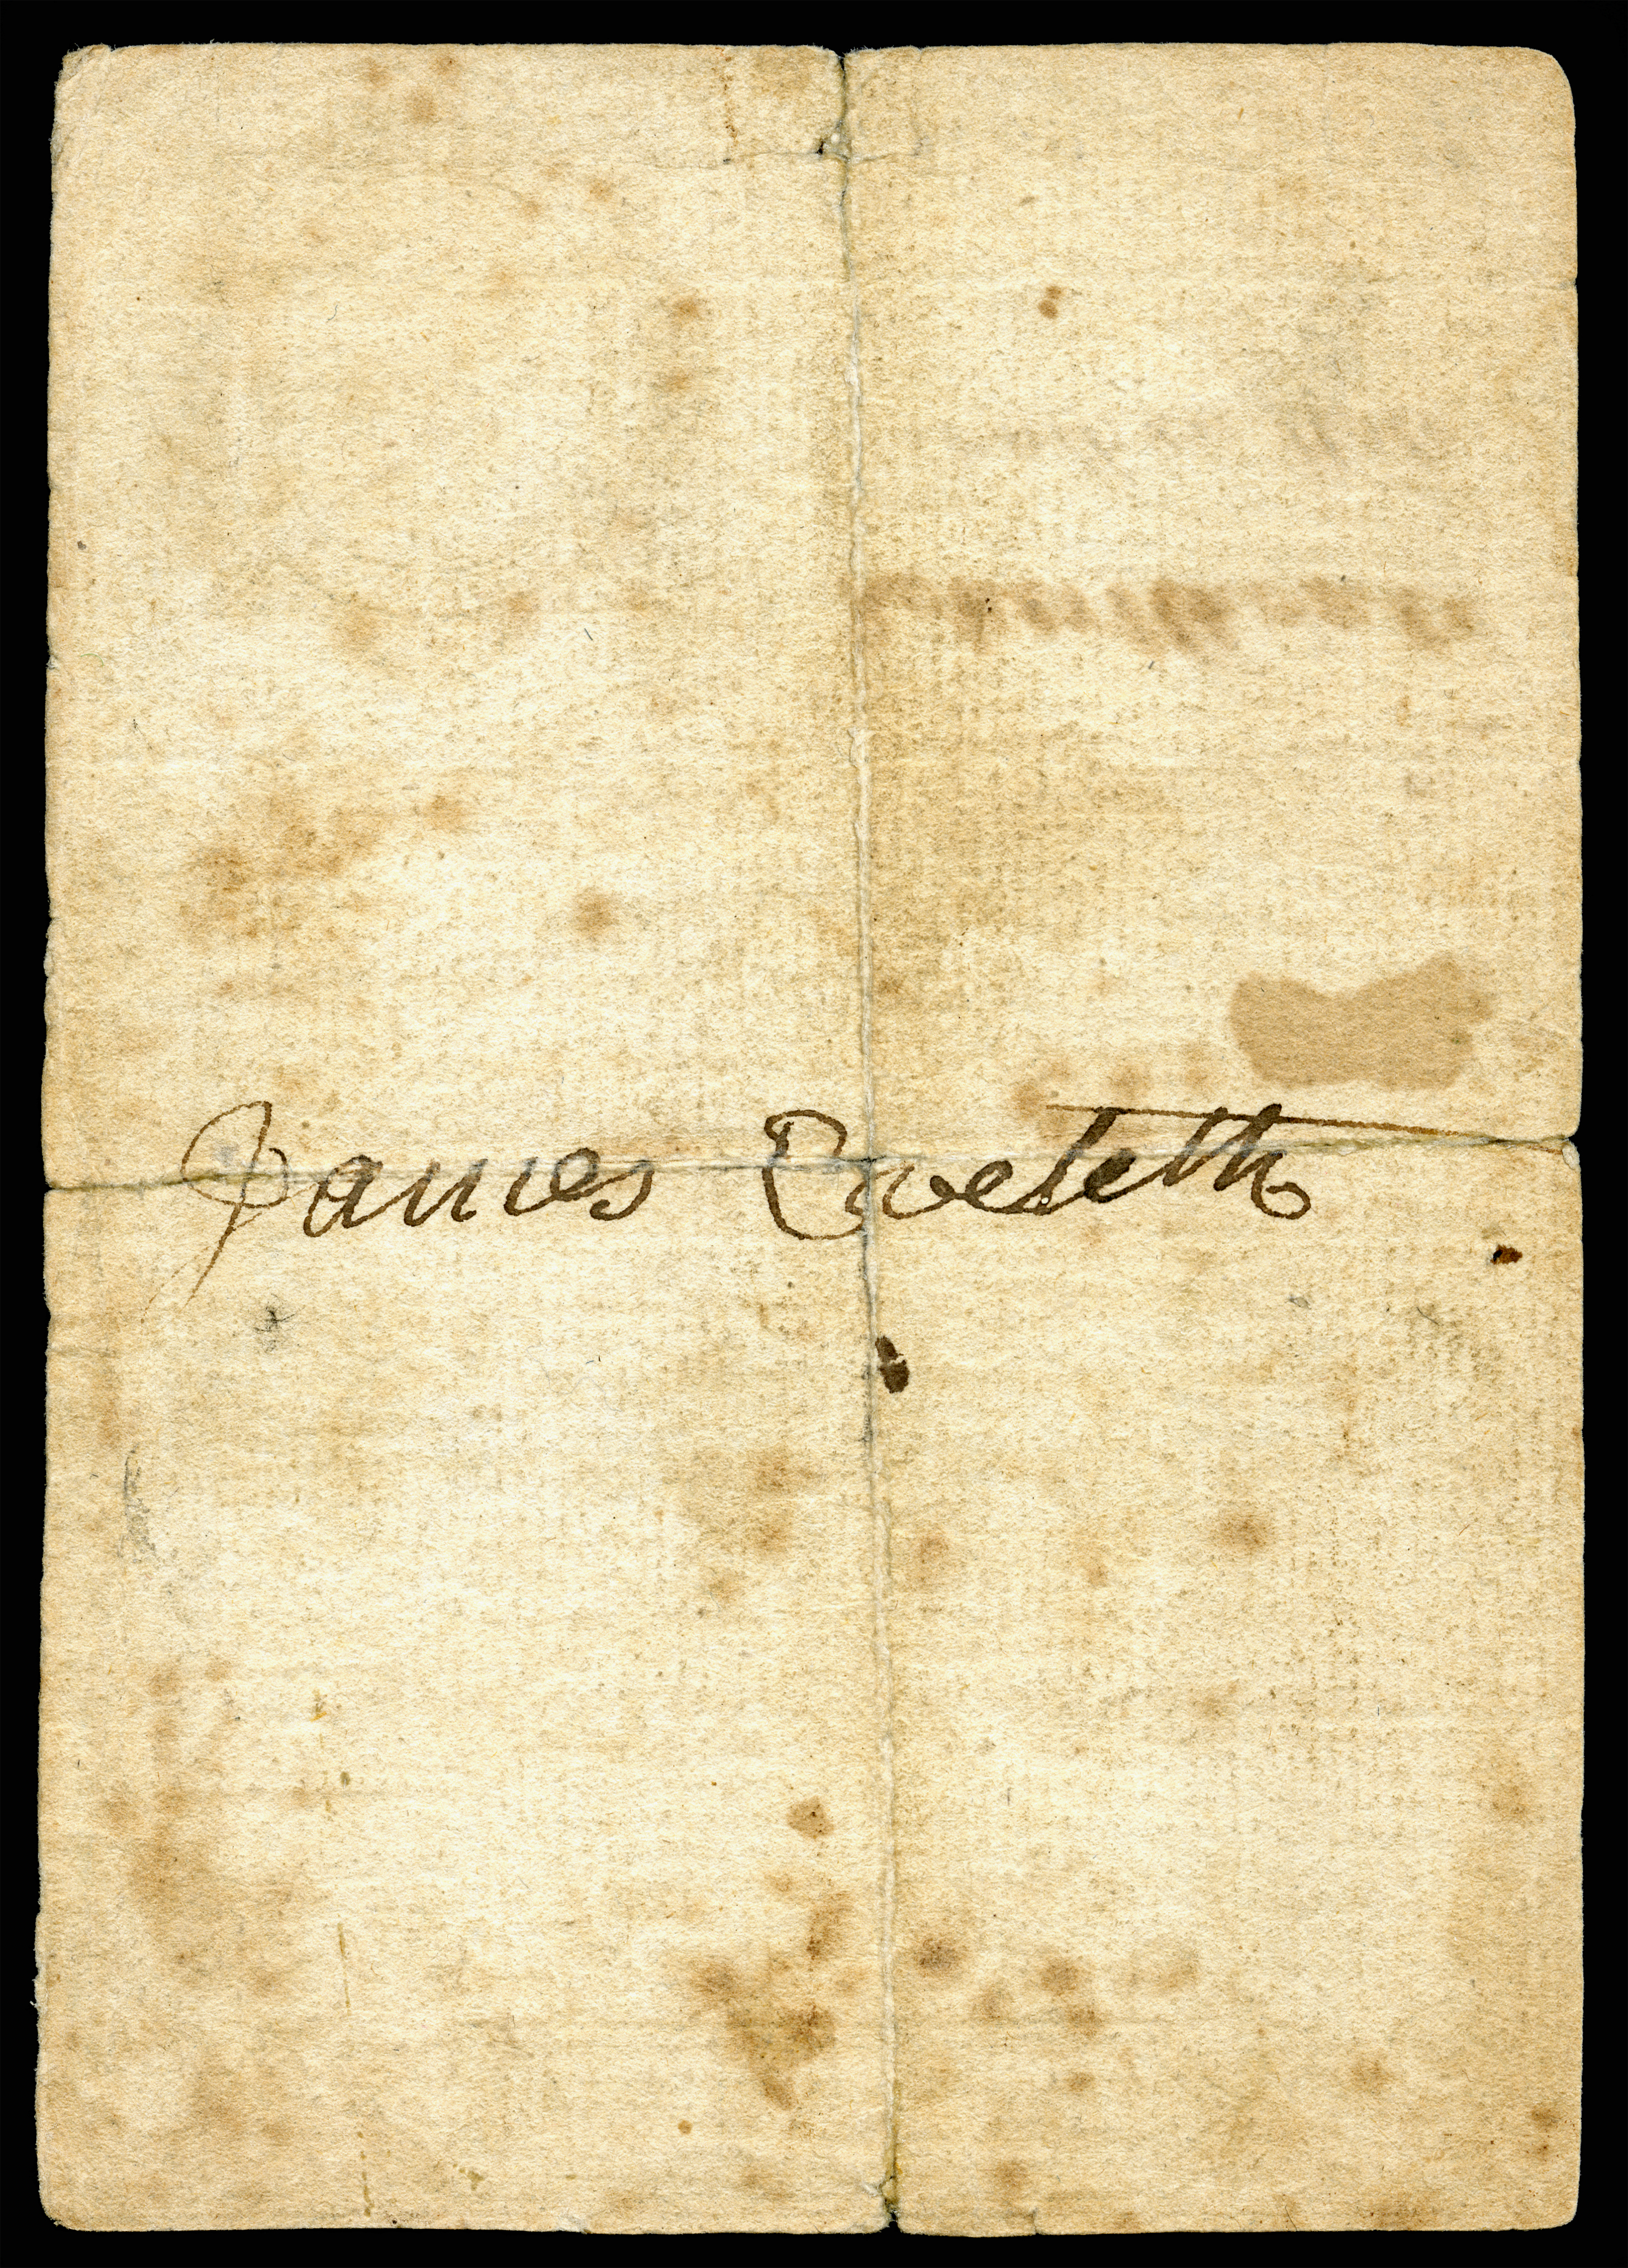 James Eveleth